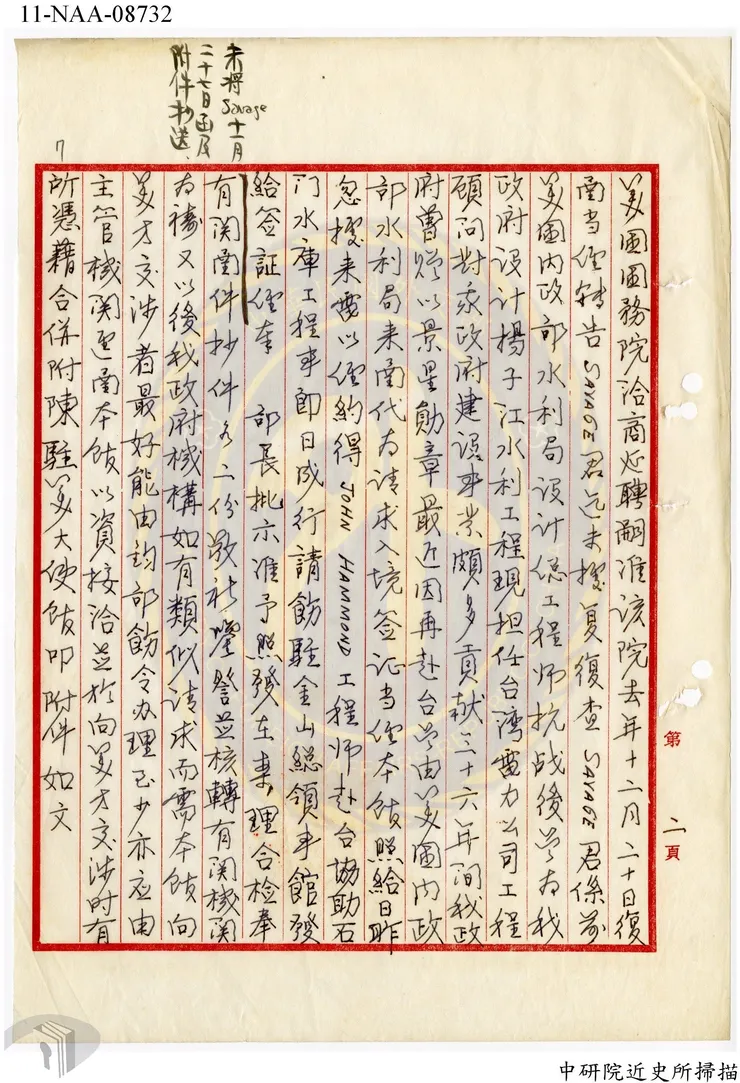 11-NAA-08732
未將 Savage 十一月
二十七日函及
附件抄送、
美國國務院洽商延聘嗣准該院去年十二月二十日復
函当經轉告 SAVAGE 君迄未據复復查 SAVAGE 君係前
美國內政部水利局設計總工程师抗战後曾为我
政府设计揚子江水利工程現担任台湾電力公司工程
顾问對我政府建設事業頗多貢献三十六年间我政
府曾贈以景星勛章最近因再赴台曾由美國内政
部水利局来函代为请求入境签证当經本館照給日昨
忽接来電以經約得 JOHN HAMMOND 工程师赴台協助石
门水庫工程事即日成行請飭駐金山總領事館發
給签証經奉 部長批示准予照發在案理合检奉
有関函件抄件各二份敬祈鑒詧並核轉有関機関
为禱又以後我政府機構如有類似请求而需本館向
美方交涉者最好能由鈞部飭令办理至少亦应由
主管機関迳函本館以資接洽並於向美方交涉时有
所憑藉合併附陳駐美大使館叩附件如文
第二頁
中研院近史所掃描